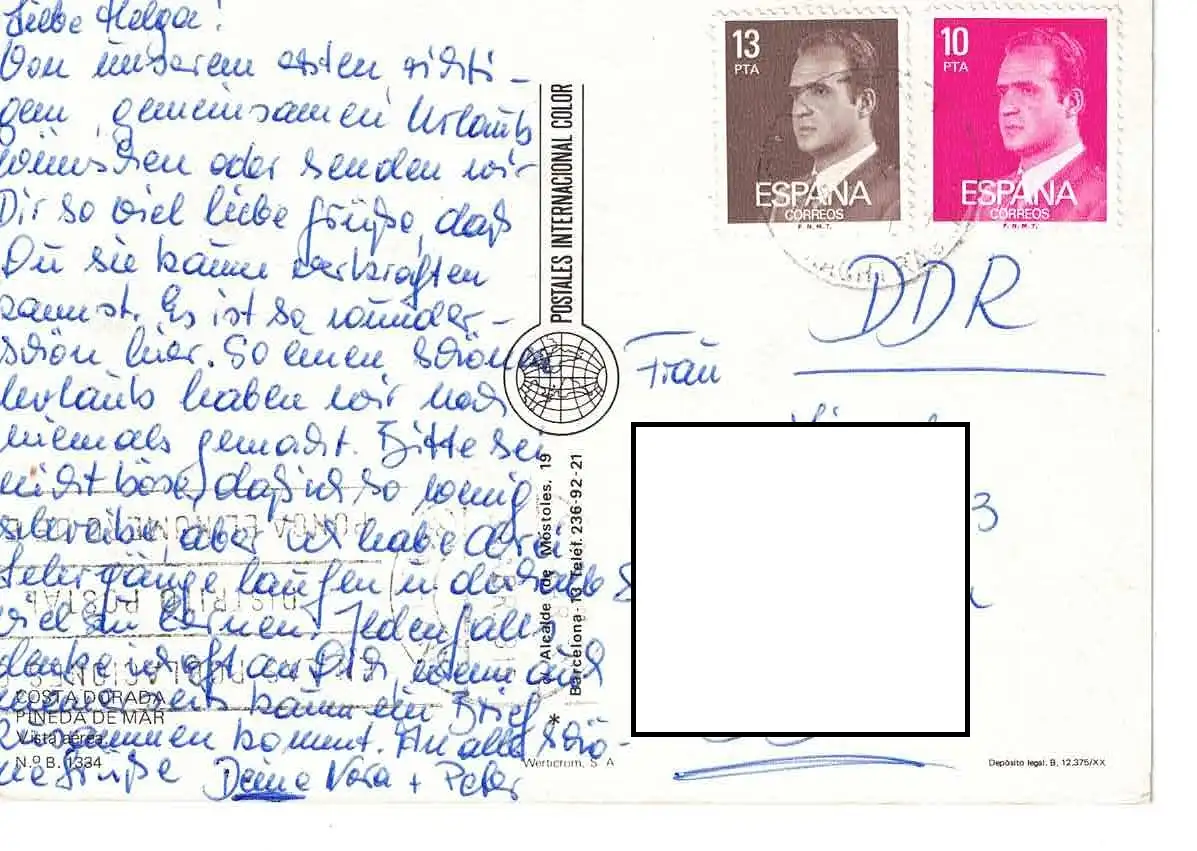 Liebe Helga!
Von unserem ersten richti-
gen, gemeinsamen Urlaub
wünschen oder senden wir
Dir so viel liebe Grüße, daß
Du sie kaum verkraften
kannst. Es ist so wunder-
schön hier. So einen schönen
Urlaub haben wir noch
niemals gemacht. Bitte sei
nicht böse, daß ich so wenig
schreibe, aber ich habe drei
Lehrgänge laufen u. deshalb
viel zu lernen. Jedenfalls
denke ich oft an Dich, wenn auch
meinerseits kaum ein Brief
zusammen kommt. An alle schö-
ne Grüße Deine Vera + Peter
COSTA DORADA
PINEDA DE MAR
Vista aérea
N.º B. 1334
POSTALES INTERNACIONAL COLOR
Alcalde de Móstoles, 19
Barcelona-13 Teléf. 236-92-21
Werticrom, S A
13
PTA
ESPAÑA
CORREOS
F.N.M.T.
10
PTA
ESPAÑA
CORREOS
F.N.M.T.
DDR
Frau
3
Depósito legal. B, 12,375/XX